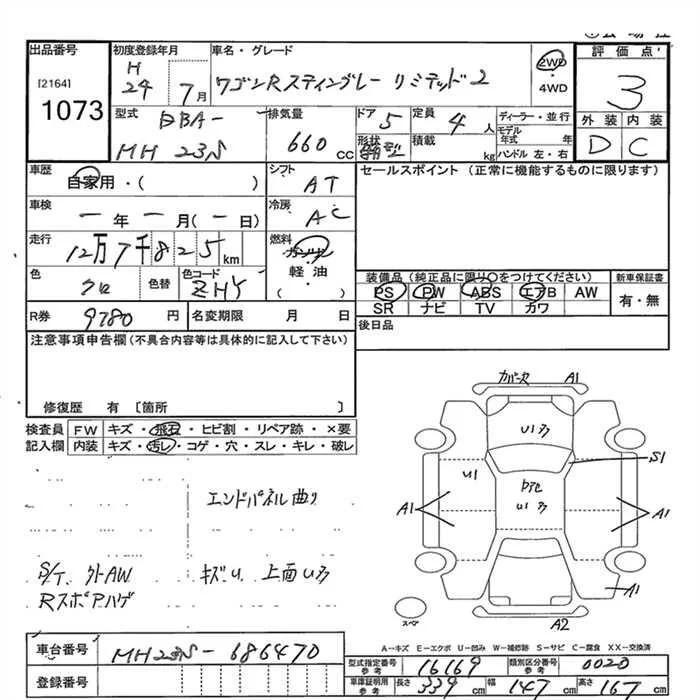 出品番号
[2164]
1073
初度登録年月
H
24 7月
車名・グレード
ワゴンRスティングレー リミテッド2
2WD
・
4WD
評価点
3
外装 内装
D C
型式
DBA-
MH 23S
排気量
660 cc
ドア 5
形状
定員 4 人
積載 kg
ディーラー・並行
モデル
年式 年
ハンドル 左・右
車歴
自家用・( )
シフト
AT
セールスポイント (正常に機能するものに限ります)
車検
一年一月(一日)
冷房
AC
走行
12万7千825km
燃料
ガソリン
軽油
( )
色
クロ
色替
色コード
ZHY
装備品(純正品に限り○をつけてください)
PS PW ABS エアB AW
SR ナビ TV カワ
新車保証書
有・無
R券 9780 円
名変期限 月 日
後日品
注意事項申告欄(不具合内容等は具体的に記入して下さい)
修復歴 有 〔箇所 〕
検査員
記入欄
FW キズ・飛石・ヒビ割・リペア跡・×要
内装 キズ・汚レ・コゲ・穴・スレ・キレ・破レ
カバー欠 A1
U1多
S1
U1
U1多
A1
A1
A1
スペア
A2
エンドパネル曲り
S/T、外AW キズU、上面U多
Rスポアハゲ
A-キズ E-エクボ U-凹み W-補修跡 S-サビ C-腐食 XX-交換済
車台番号 MH23S-686470
登録番号
型式指定番号
参考
16169
類別区分番号
参考
0020
車庫証明用
参考
長さ 339 cm 幅 147 cm 高さ 167 cm